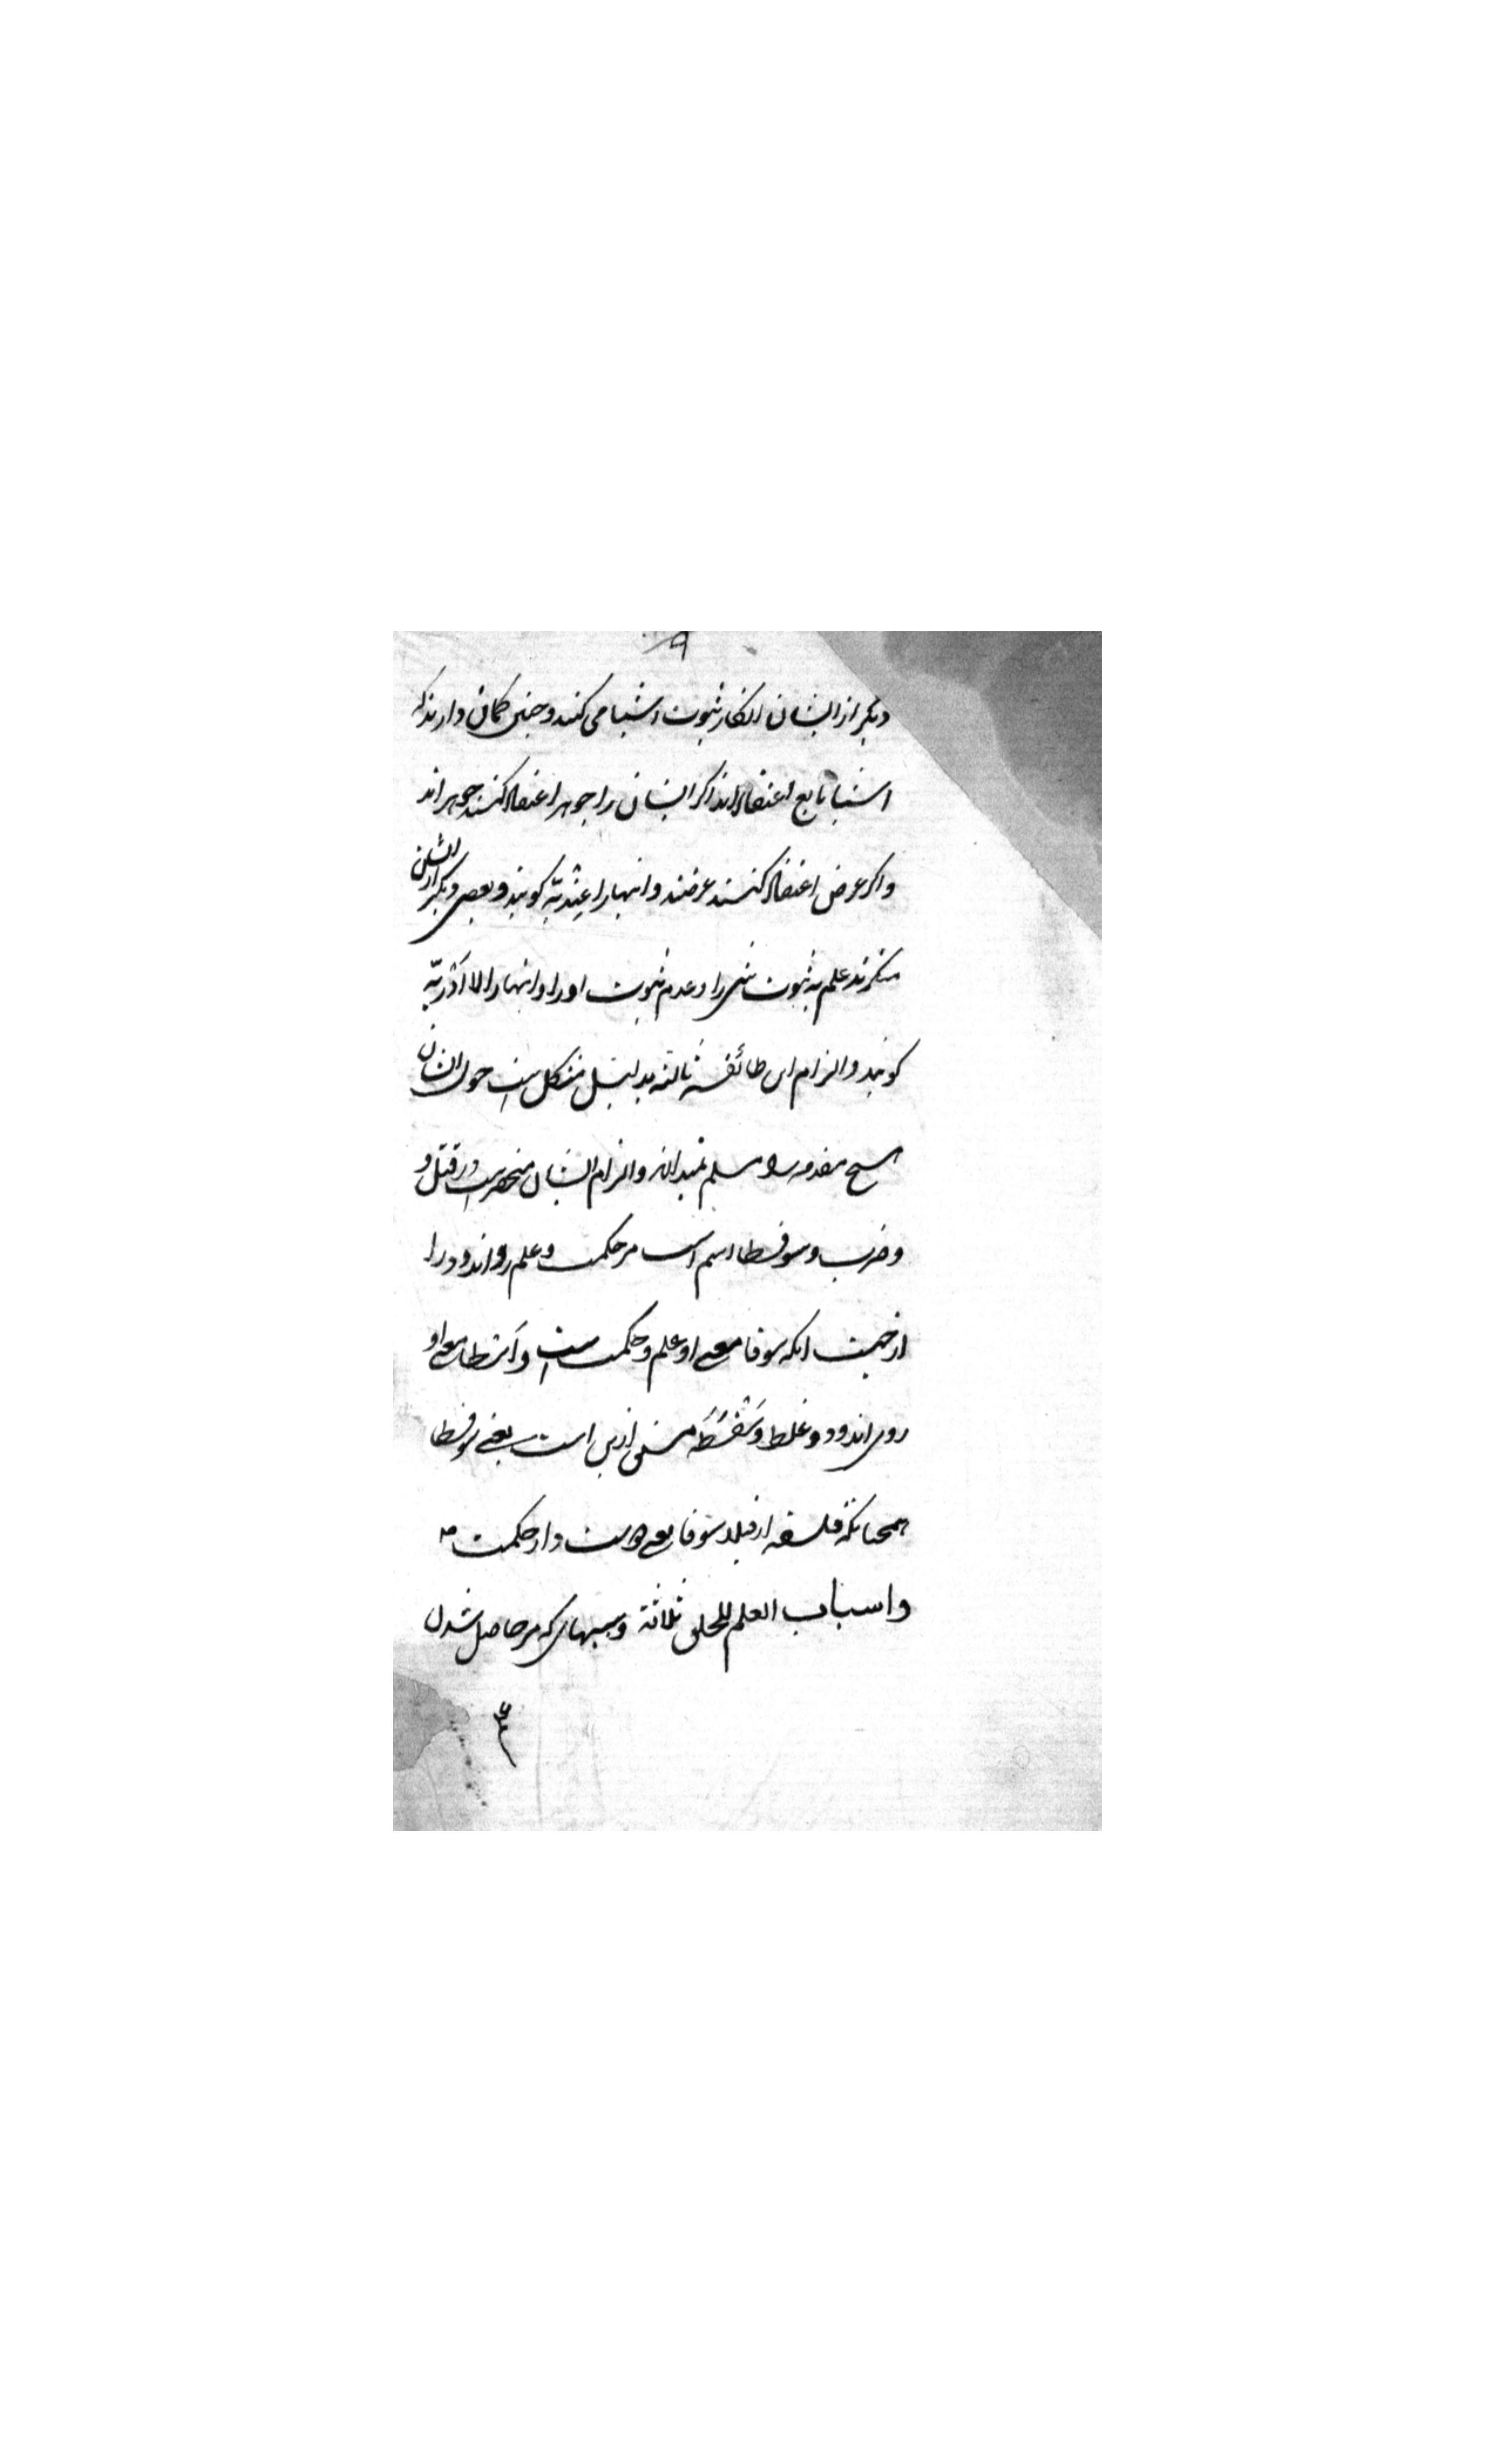 ۹
دیگر از ایشان انکار ثبوت اشیا می کنند و چنین کمان دارند که
اشیا تابع اعتقاد اند اکر ایشان را جوهر اعتقاد کنند جوهر اند
واکر عرض اعتقاد کنند عرضند و اینها را عِنْدیّه کویند و بعضی دیکر از ایشان
منکرند علم به ثبوت شی را و عدم ثبوت او را و اینها را لا ادریّه
کویند و الزام این طائفه ثالثه بدلیل مشکل است چون ایشان
هیچ مقدمه را مسلم نمیدانند و الزام ایشان منحصر است در قتل و
و ضرب و سوفسطا اسم است مر حکمت و علم رو اندود را
از جهت انکه سوفا معنی او علم و حکمت است و اَسْطا معنی او
روی اندود و غلط و سَفْسَطَه مشتق ازین است یعنی سوفسطا
همچنانکه فلسفه از فیلا سوفا یعنی دوست دار حکمت
واسباب العلم للخلق ثلاثة و سببهای که مر حاصل شدن